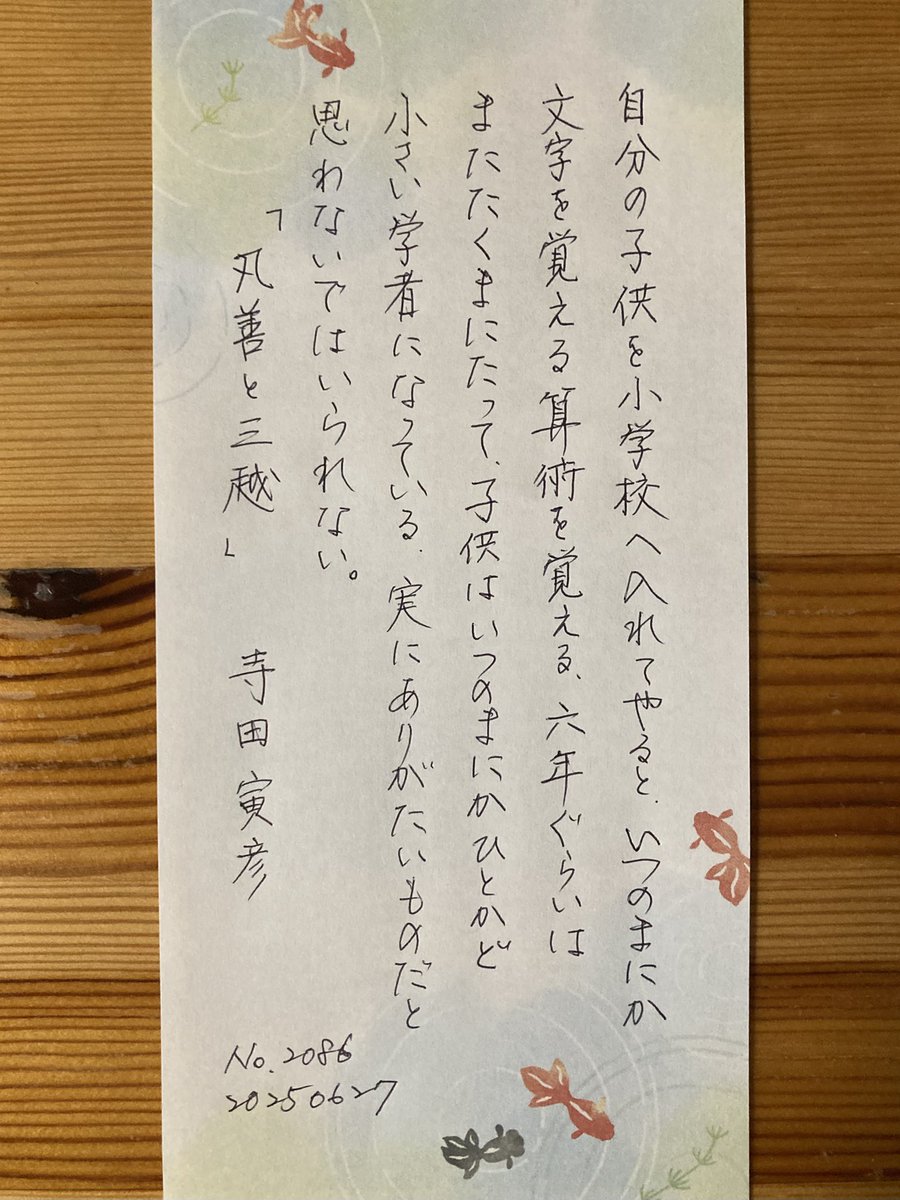 自分の子供を小学校へ入れてやると、いつのまにか
文字を覚える算術を覚える、六年ぐらいは
またたくまにたって、子供はいつのまにかひとかど
小さい学者になっている、実にありがたいものだと
思わないではいられない。
「丸善と三越」 寺田寅彦
No.2086
20250627